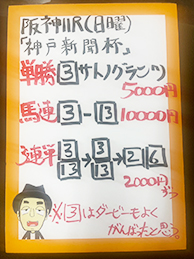 阪神11R(日曜)
「神戸新聞杯」
単勝 3 サトノグランツ
5000円
馬連 3 - 13 10000円
3連単 3 13 → 3 13 → 2 6
2000円ずつ
※3はダービーもよく
がんばったと思う。